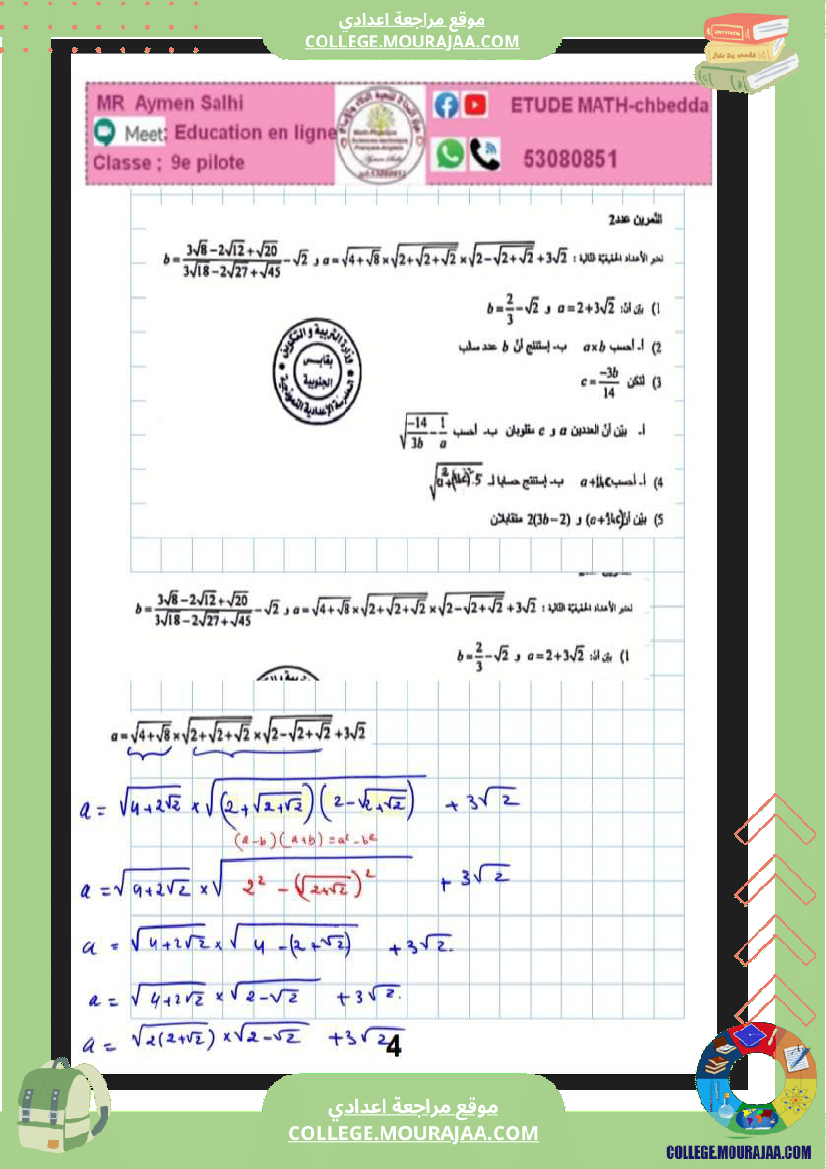 موقع مراجعة اعدادي
COLLEGE.MOURAJAA.COM
MR Aymen Salhi
Meet: Education en ligne
Classe ; 9e pilote
ETUDE MATH-chbedda
53080851
التمرين عدد2
نعتبر الأعداد الحقيقية التالية : a=√(4+√8)×√(2+√(2+√2))×√(2-√(2+√2))+3√2 و b=(3√8-2√12+√20)/(3√18-2√27+√45)-√2
1) بيّن أنّ: a=2+3√2 و b=2/3-√2
2) أ- أحسب a×b ب- إستنتج أنّ b عدد سالب
3) لتكن c=-3b/14
أ- بيّن أنّ العددين a و c مقلوبان ب- أحسب √(-14/3b-1/a)
4) أ- أحسب a+14c ب- إستنتج حسابا لـ √(a²+(14c)²-5)
5) بيّن أنّ (a+14c) و 2(3b-2) متقابلان
وزارة التربية و التكوين
بقابس
الجنوبية
المدرسة الإعدادية النموذجية
نعتبر الأعداد الحقيقية التالية : a=√(4+√8)×√(2+√(2+√2))×√(2-√(2+√2))+3√2 و b=(3√8-2√12+√20)/(3√18-2√27+√45)-√2
1) بيّن أنّ: a=2+3√2 و b=2/3-√2
a=√(4+√8)×√(2+√(2+√2))×√(2-√(2+√2))+3√2
a = √(4+2√2) × √((2+√(2+√2))(2-√(2+√2))) + 3√2
(a-b)(a+b)=a²-b²
a = √(4+2√2) × √(2² - (√(2+√2))²) + 3√2
a = √(4+2√2) × √(4-(2+√2)) + 3√2.
a = √(4+2√2) × √(2-√2) + 3√2.
a = √(2(2+√2)) × √(2-√2) + 3√2
4
موقع مراجعة اعدادي
COLLEGE.MOURAJAA.COM
COLLEGE.MOURAJAA.COM